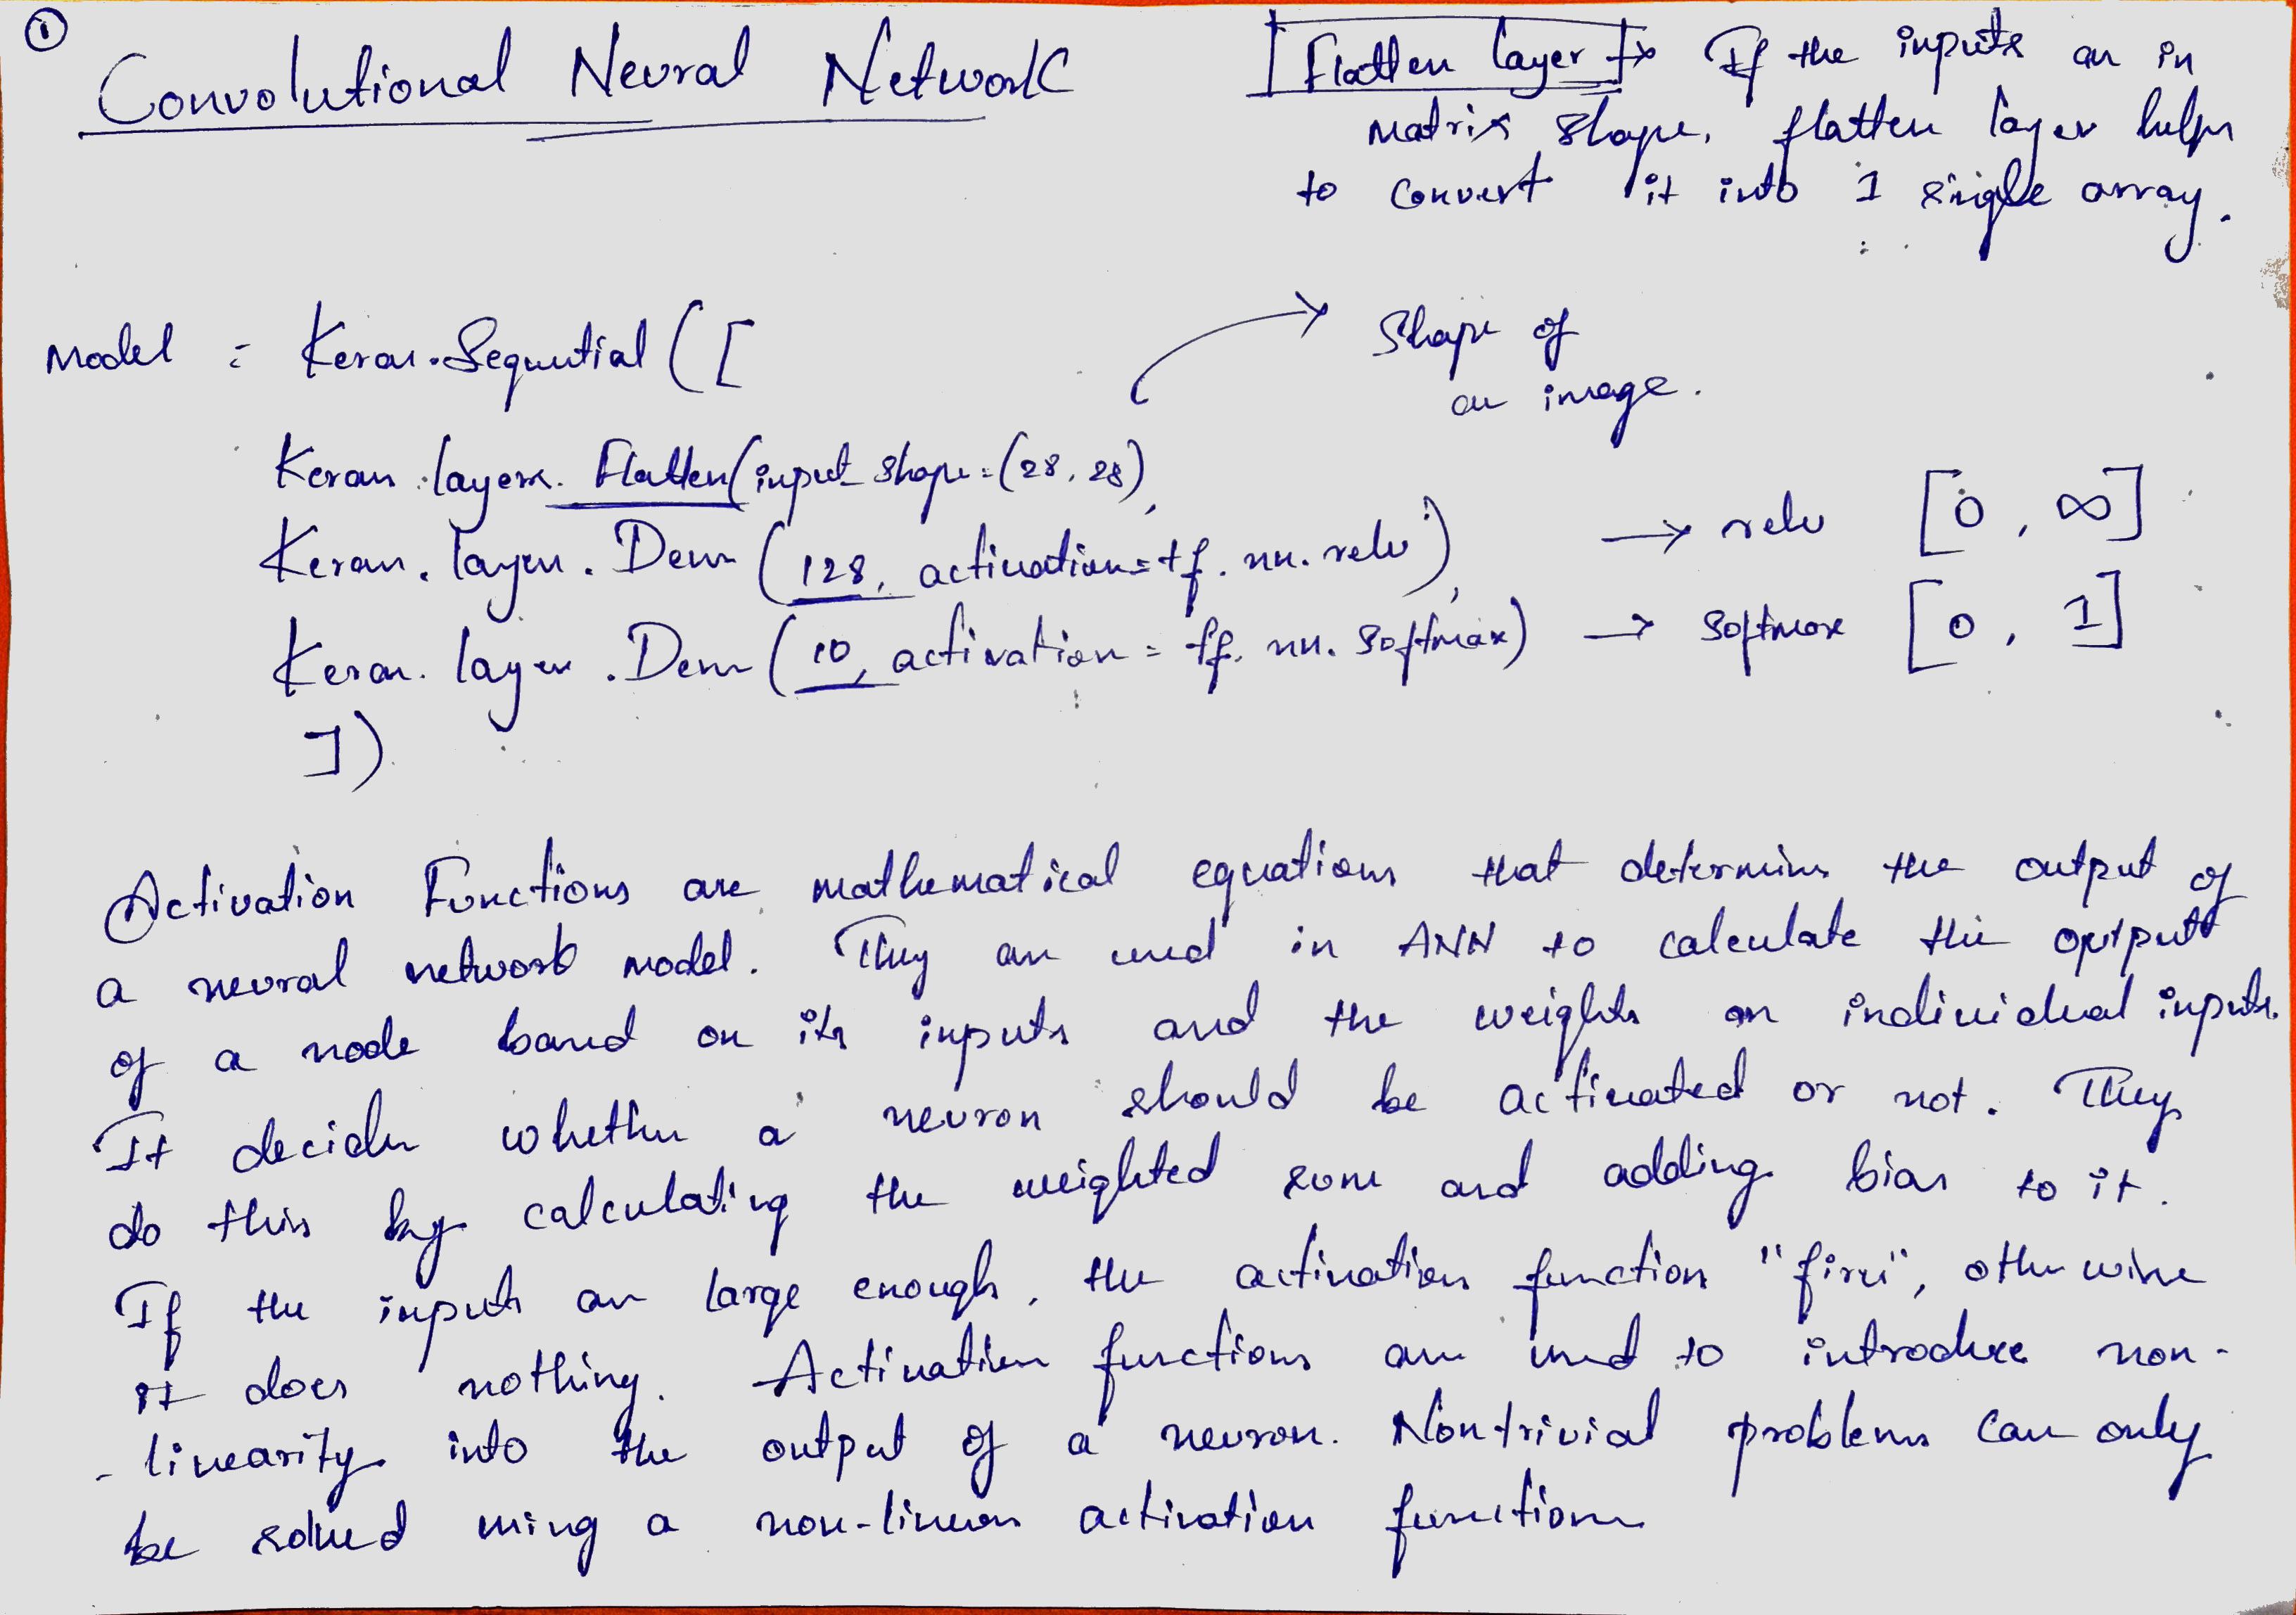 ①
Convolutional Neural Network
[Flatten layer]→ If the inputs are in
matrix shape, flatten layer helps
to convert it into 1 single array.
Model = Keras.Sequential([
→ Shape of
an image.
Keras.layers.Flatten(input_shape=(28,28),
Keras.layers.Dense(128, activation=tf.nn.relu), → relu [0, ∞]
Keras.layers.Dense(10, activation=tf.nn.softmax) → softmax [0, 1]
])
Activation Functions are mathematical equations that determine the output of
a neural network model. They are used in ANN to calculate the output
of a node based on its inputs and the weights on individual inputs.
It decides whether a neuron should be activated or not. They
do this by calculating the weighted sum and adding bias to it.
If the inputs are large enough, the activation function "fires", otherwise
it does nothing. Activation functions are used to introduce non-
-linearity into the output of a neuron. Nontrivial problems can only
be solved using a non-linear activation functions